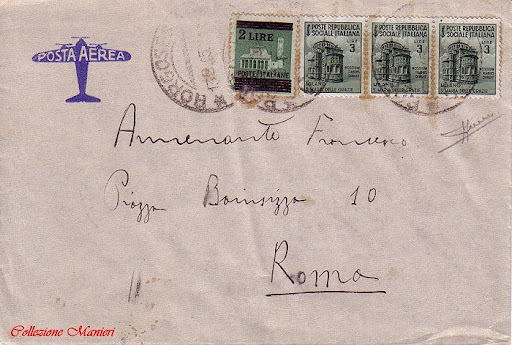 POSTA AEREA
2 LIRE
POSTE ITALIANE
POSTE REPUBBLICA
SOCIALE ITALIANA
LIRE
3
POSTE REPUBBLICA
SOCIALE ITALIANA
LIRE
3
POSTE REPUBBLICA
SOCIALE ITALIANA
LIRE
3
Annenante Francesco
Piazza Bainsizza 10
Roma
Collezione Manieri